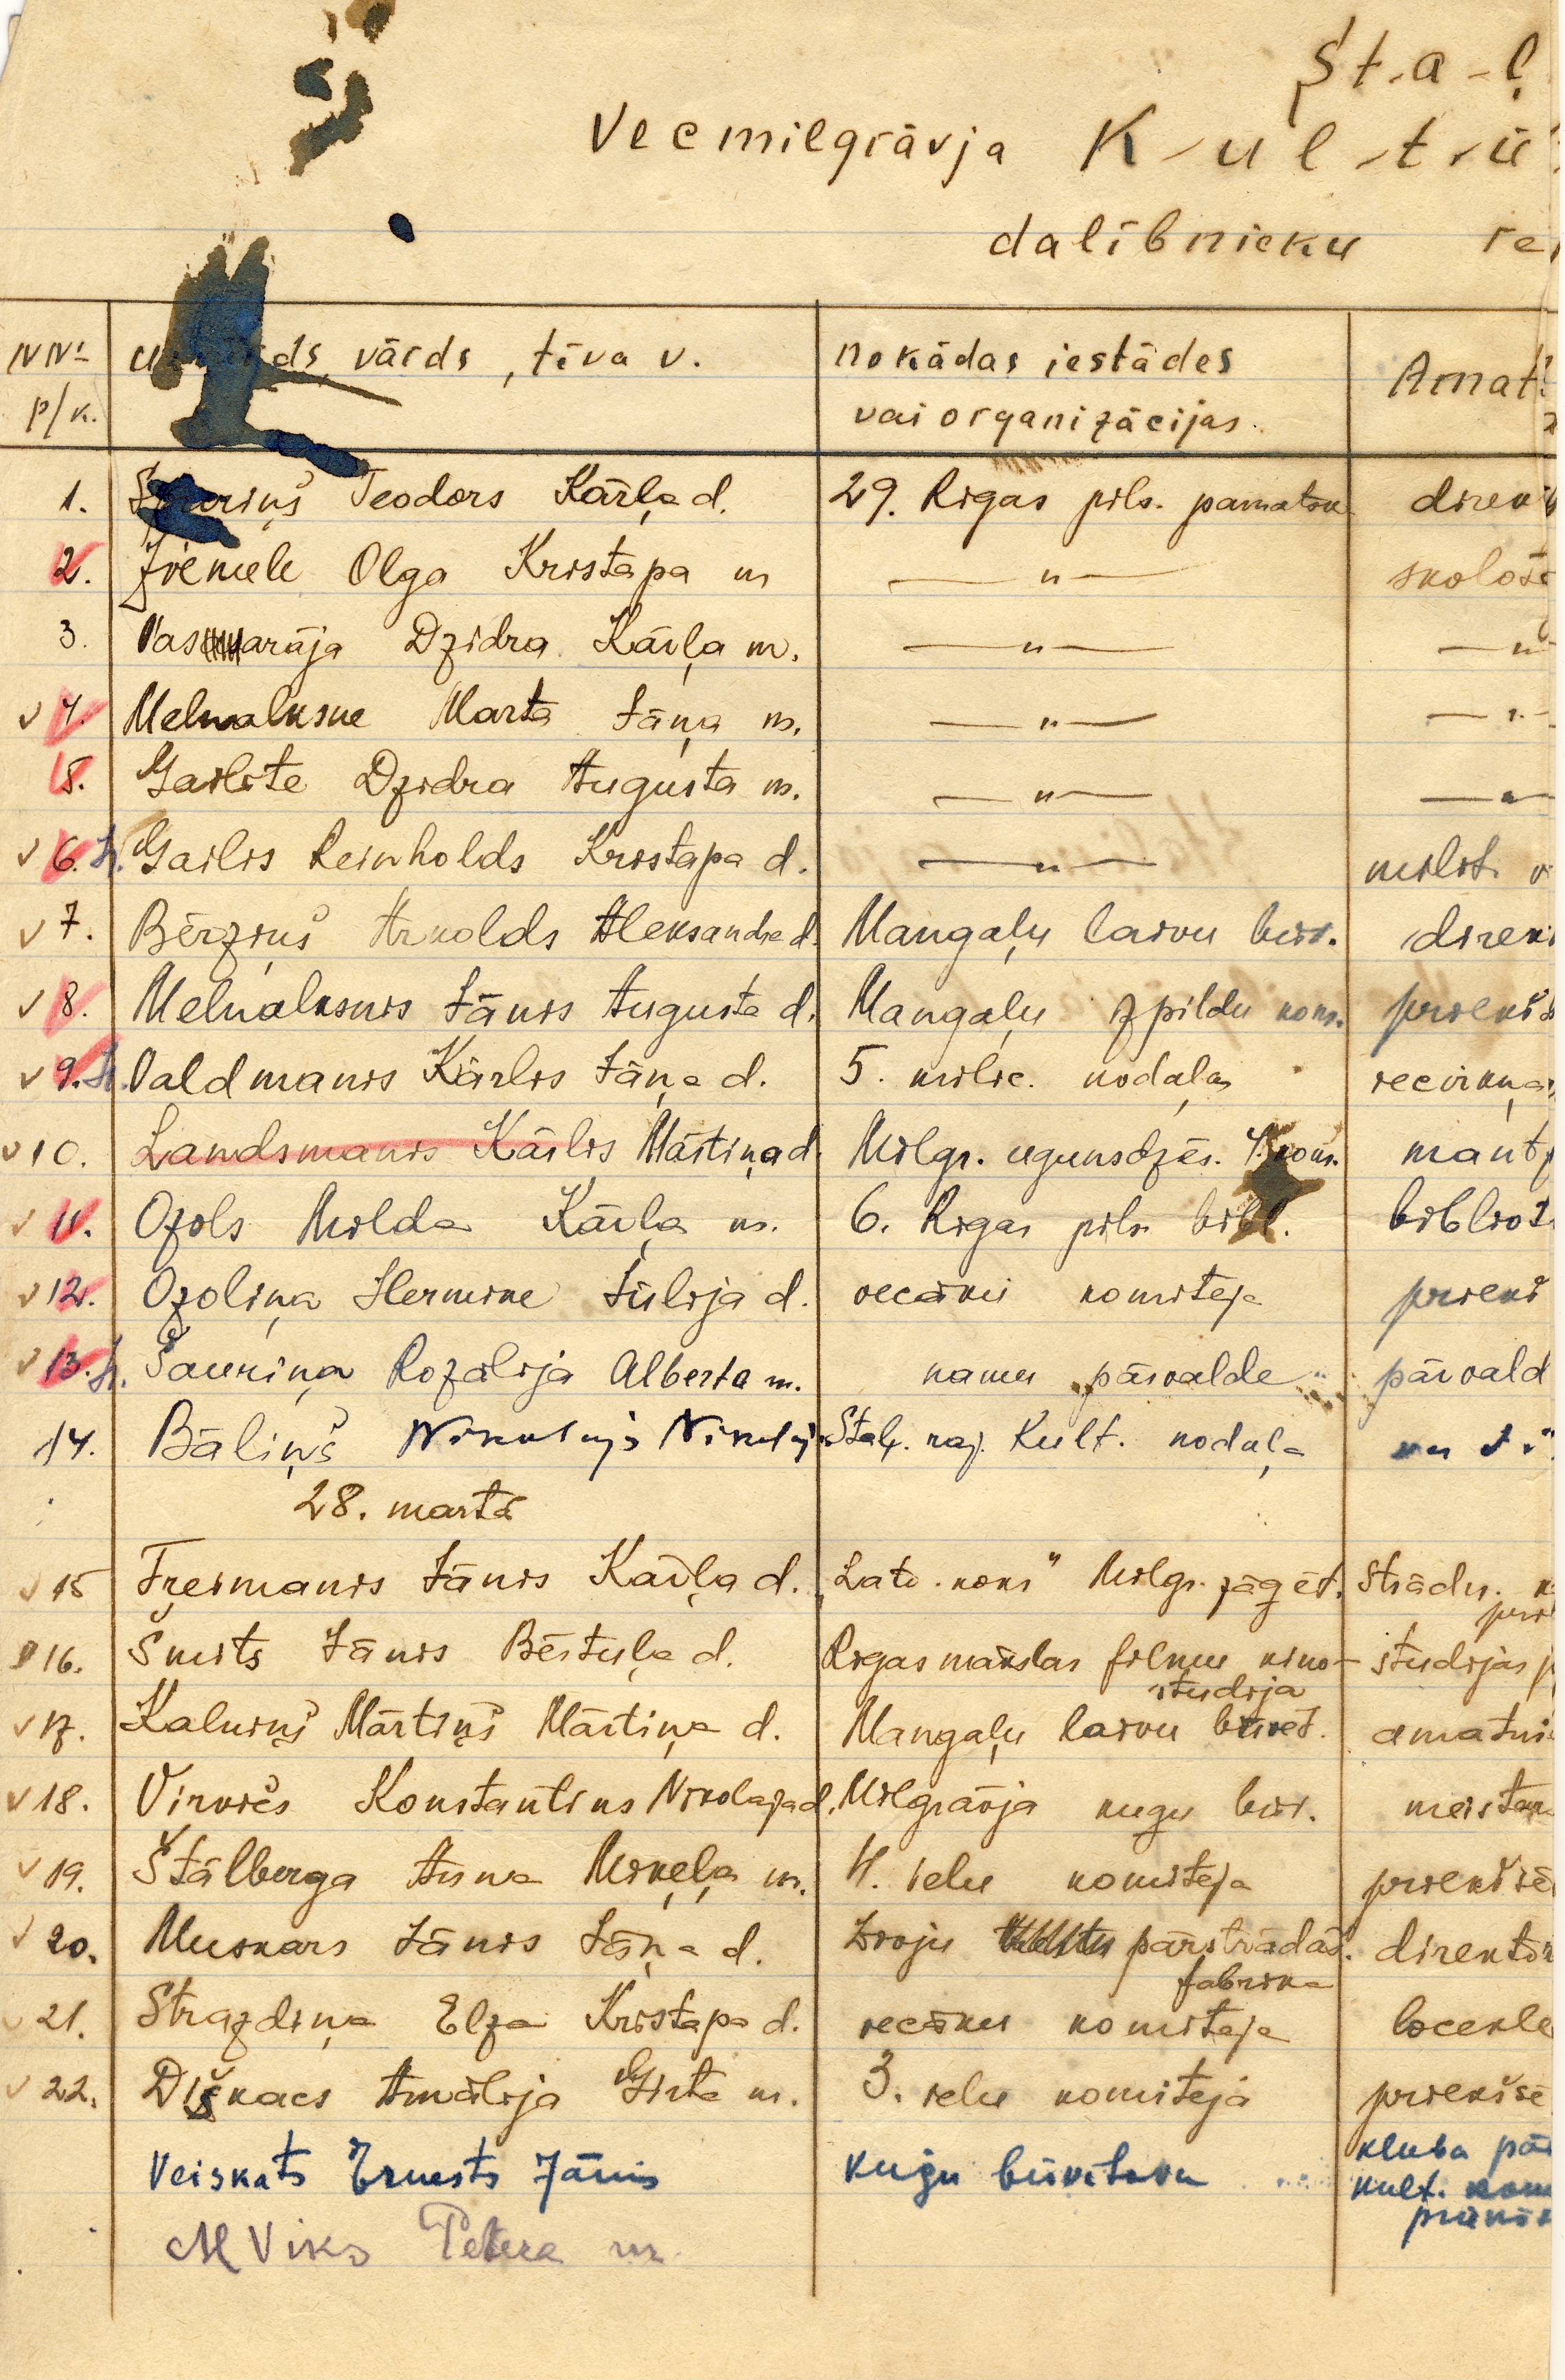 St-a-ļ
Vecmilgrāvja K-u-l-t-ū
dalībnieku re
NNo uzvārds, vārds, tēva v. no kādas iestādes Amat
p/k. vai organizācijas.
1. Teodors Kārļa d. 29. Rīgas pils. pamatsk. direk
2. Ziemele Olga Kristapa m — " — skolot
3. Dzidra Kārļa m. — " — — " —
v 4. Melnalksne Marta Jāņa m. — " — — " —
5. Gailīte Dzidra Augusta m. — " — — " —
v 6. Gailis Reinholds Kristapa d. — " — milit. v
v 7. Bērziņš Arnolds Aleksandra d. Mangaļu laivu būv. direk
v 8. Melnalksnis Jānis Augusta d. Mangaļu izpildu kom. priekš
v 9. Valdmanis Kārlis Jāņa d. 5. milic. nodaļas iecirkņa
v 10. Landsmanis Kārlis Mārtiņa d. Milgr. ugunsdzēs. 4. kom. mantz
v 11. Ozols Milda Kārļa m. 6. Rīgas pils. bibl. bibliot
v 12. Ozoliņa Hermine Jūlija d. vecāku komiteja priekš
v 13. Šauriņa Rozālija Alberta m. namu pārvalde pārvald
14. Bāliņš Nikolajs Nikolaja Staļ. raj. Kult. nodaļa
28. martā
v 15 Freimanis Jānis Kārļa d. "Latv. koks" Milgr. zāģēt. Strādn. k
prie
16. Šmits Jānis Bērtuļa d. Rīgas mākslas filmu kino- studijas p
studija
v 17. Kalniņš Mārtiņš Mārtiņa d. Mangaļu laivu būvēt. amatni
v 18. Virvičs Konstantīns Nikolaja d. Milgrāvja kuģu būv. meistar
v 19. Štālberga Anna Miķeļa m. 4. ielu komiteja priekšsē
v 20. Muskars Jānis Jāņa d. Zivju pārstrādāš. direktor
fabrika
v 21. Strazdiņa Elza Kristapa d. vecāku komiteja locekle
v 22. Diškacs Amālija Ģirta m. 3. ielu komiteja priekšsē
Veiskats Ernests Jānis kuģu būvētava kluba pār
kult. kom
priekš
M Viks Pētera m.